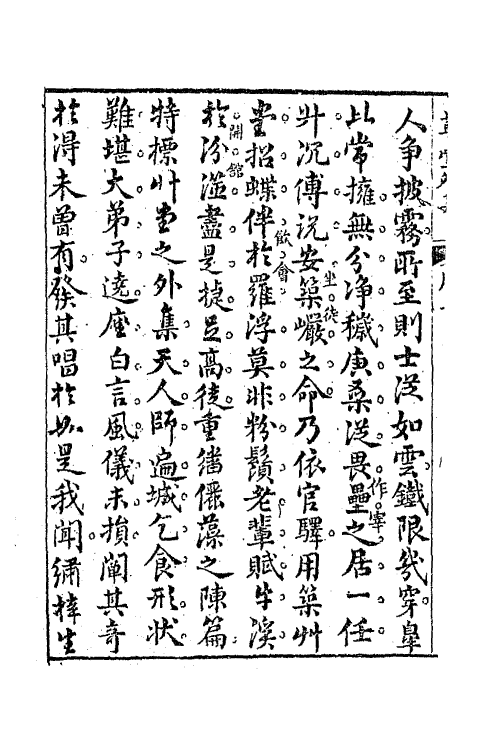 人争披霧所至則士従如雲鐵限幾穿臯
比常擁無分净穢庚桑従畏壘之居一任
作宰
升沉傅説安築巖之命乃依官驛用築艸
坐徒
堂招蝶伴於羅浮莫非粉鬚老輩賦牛溪
飲會
於汾澨盡是捷足高徒重繙儷藻之陳篇
開舘
特標艸堂之外集天人師遍城乞食形狀
難堪大弟子遶座白言風儀未損闡其奇
於得未曽有發其唱於如是我聞繡梓生